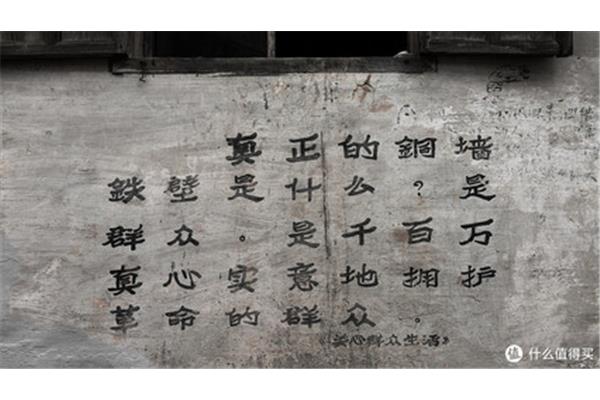 真正的銅墙
鉄壁是什么?是
群众。是千百万
真心实意地拥护
革命的群众。
《关心群众生活》
值 什么值得买